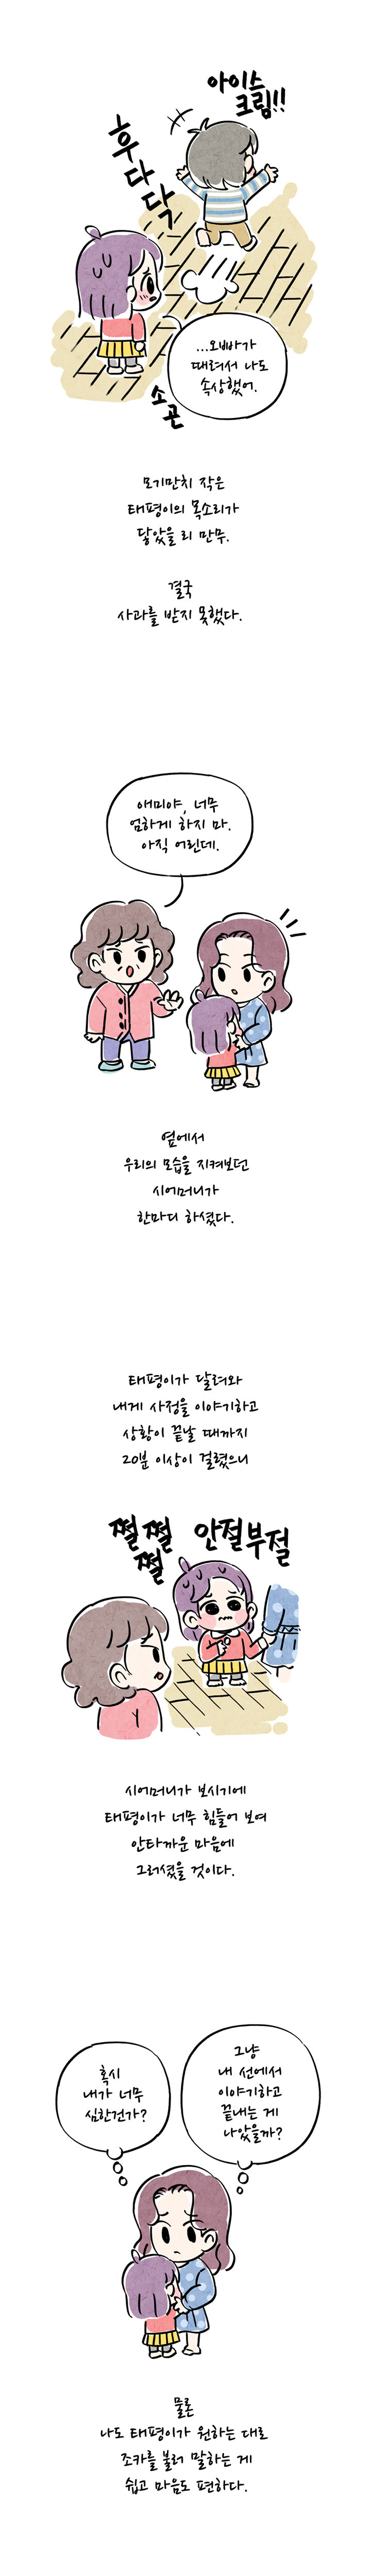 아이스
크림!!
후
다
닥
...오빠가
때려서 나도
속상했어.
소
곤
모기만치 작은
태평이의 목소리가
닿았을 리 만무.
결국
사과를 받지 못했다.
애미야, 너무
엄하게 하지 마.
아직 어린데.
옆에서
우리의 모습을 지켜보던
시어머니가
한마디 하셨다.
태평이가 달려와
내게 사정을 이야기하고
상황이 끝날 때까지
20분 이상이 걸렸으니
쩔쩔
쩔
안절부절
시어머니가 보시기에
태평이가 너무 힘들어 보여
안타까운 마음에
그러셨을 것이다.
혹시
내가 너무
심한건가?
그냥
내 선에서
이야기하고
끝내는 게
나았을까?
물론
나도 태평이가 원하는 대로
조카를 불러 말하는 게
쉽고 마음도 편하다.